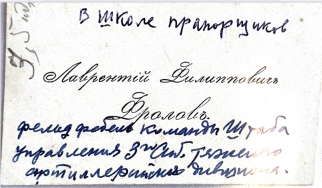 В Школе прапорщиков
Лаврентій Филипповичъ
Фроловъ.
фельдфебель команды Штаба
управления 3го Сиб. тяжелого
артиллерийского дивизиона.